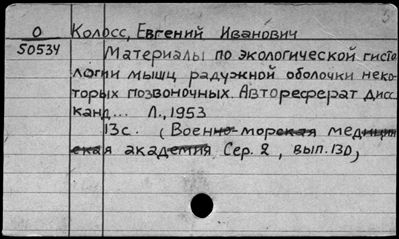 5
О Колосс, Евгений Иванович
50534 Материалы по экологической гисто
логии мышц радужной оболочки неко-
торых позвоночных. Автореферат дисс.
канд... Л., 1953
13с. (Военно-морская медицин
ская академия Сер. 2, вып. 130)